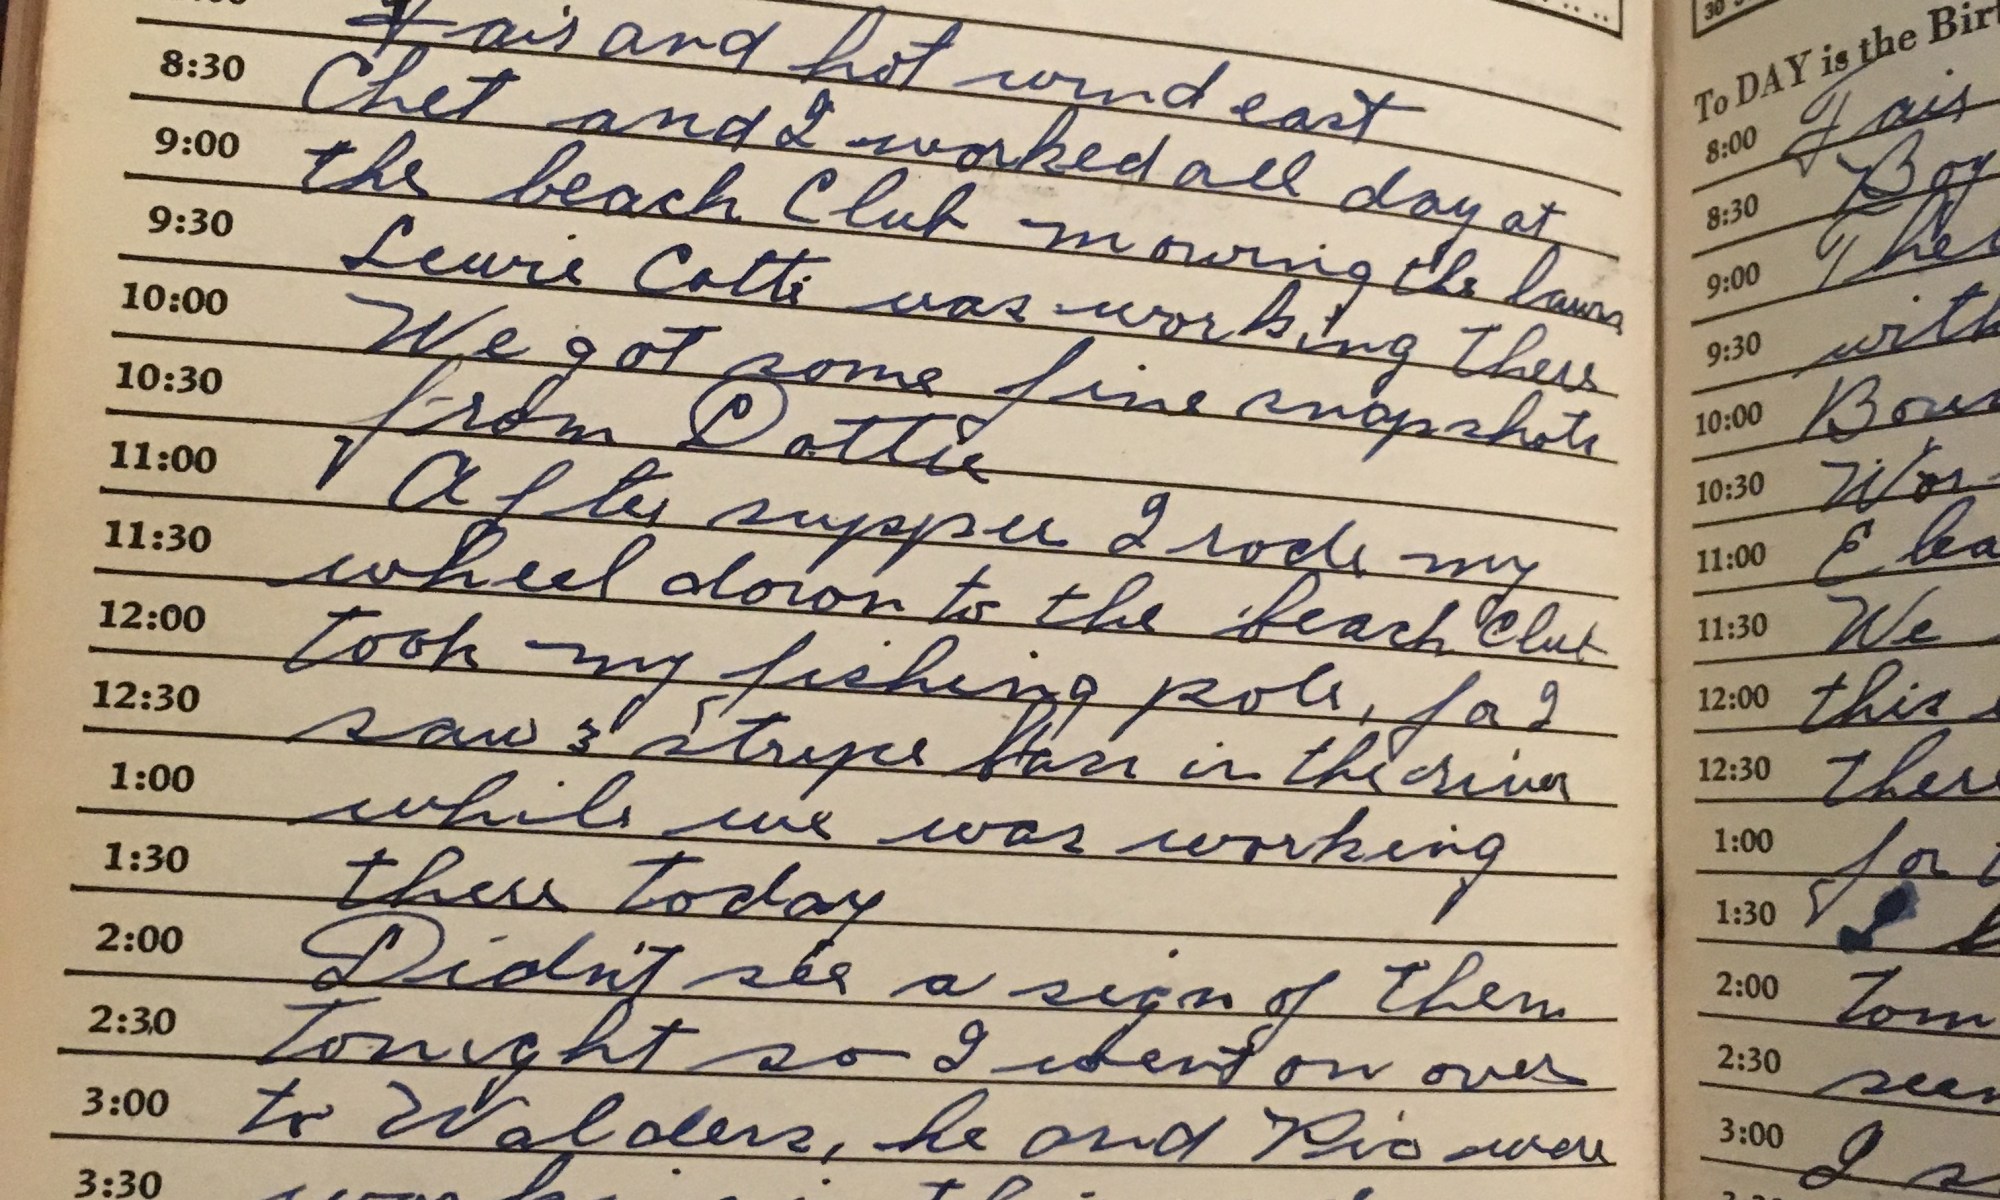 Fair and hot wind east
8:30 Chet and I worked all day at
9:00 the beach Club mowing the lawn
9:30 Lewie Cotti was working there
10:00 We got some fine snapshots
10:30 from Dottie
11:00 After supper I rode my
11:30 wheel down to the beach Club
12:00 took my fishing pole, for I
12:30 saw 3 stripe bass in the river
1:00 while we was working
1:30 there today
2:00 Didn't see a sign of them
2:30 tonight so I went on over
3:00 to Walders, he and Rio were
3:30
30
To DAY is the Birt
8:00 Fair
8:30 Boy
9:00 The
9:30 with
10:00
10:30 Wor
11:00 E lea
11:30 We
12:00 this
12:30 there
1:00 for t
1:30
2:00 tom
2:30 seen
3:00 I s